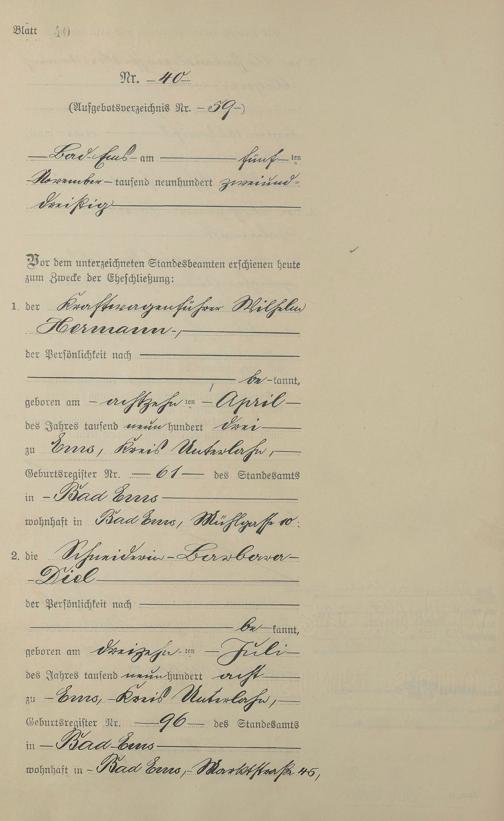 Blatt 40
Nr. – 40 –
(Aufgebotsverzeichnis Nr. – 59 –)
– Bad Ems – am fünf ten
November – tausend neunhundert zweiund-
dreißig
Vor dem unterzeichneten Standesbeamten erschienen heute
zum Zwecke der Eheschließung:
1. der Kraftwagenführer Wilhelm
Hermann -,
der Persönlichkeit nach
be - kannt,
geboren am – achtzehn ten – April –
des Jahres tausend neun hundert drei –
zu Ems, Kreis Unterlahn, –
Geburtsregister Nr. – 61 – des Standesamts
in – Bad Ems
wohnhaft in Bad Ems, Mühlgasse 10.
2. die Schneiderin – Barbara –
– Diel
der Persönlichkeit nach
be - kannt,
geboren am dreizehn ten – Juli –
des Jahres tausend neun hundert acht
zu – Ems, – Kreis Unterlahn, –
Geburtsregister Nr. – 96 – des Standesamts
in – Bad Ems
wohnhaft in – Bad Ems, – Marktstraße 45,